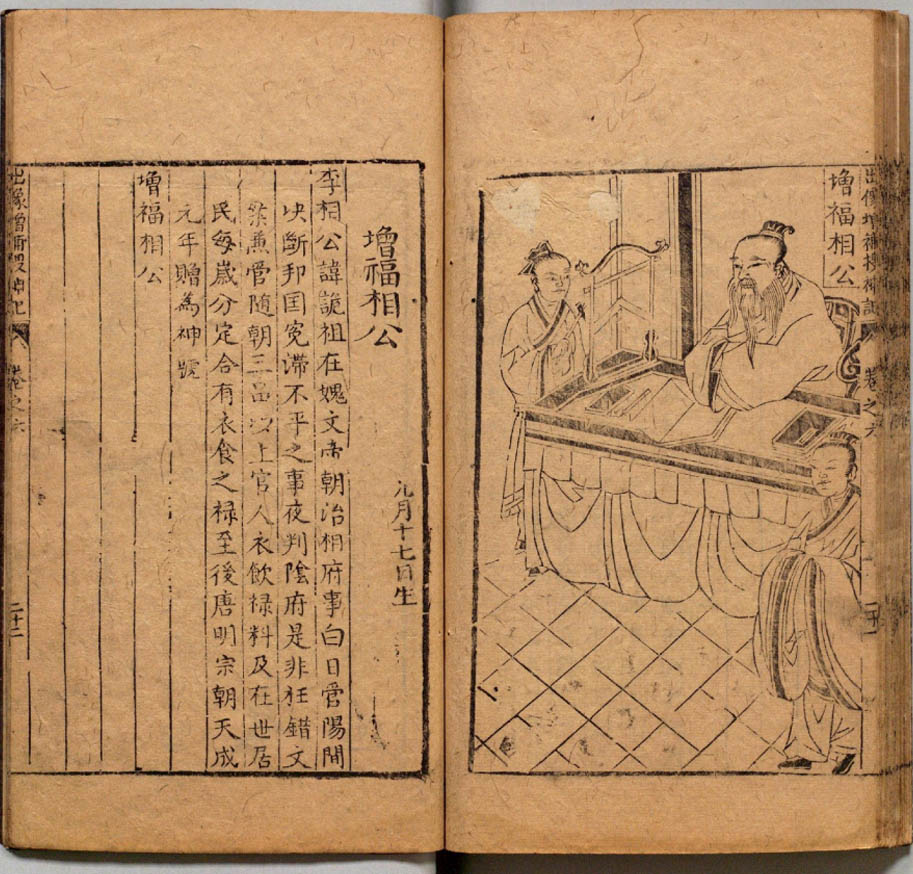 出像增補搜神記 卷之六
增福相公
九月十七日生
增福相公
李相公諱詭祖在媿文帝朝治相府事白日管陽間
决斷邦国冤滯不平之事夜判陰府是非枉錯文
案兼管随朝三品以上官人衣飲禄料及在世居
民每歲分定合有衣食之禄至後唐明宗朝天成
元年贈為神號
增福相公
出像增補搜神記 卷之六 二十二